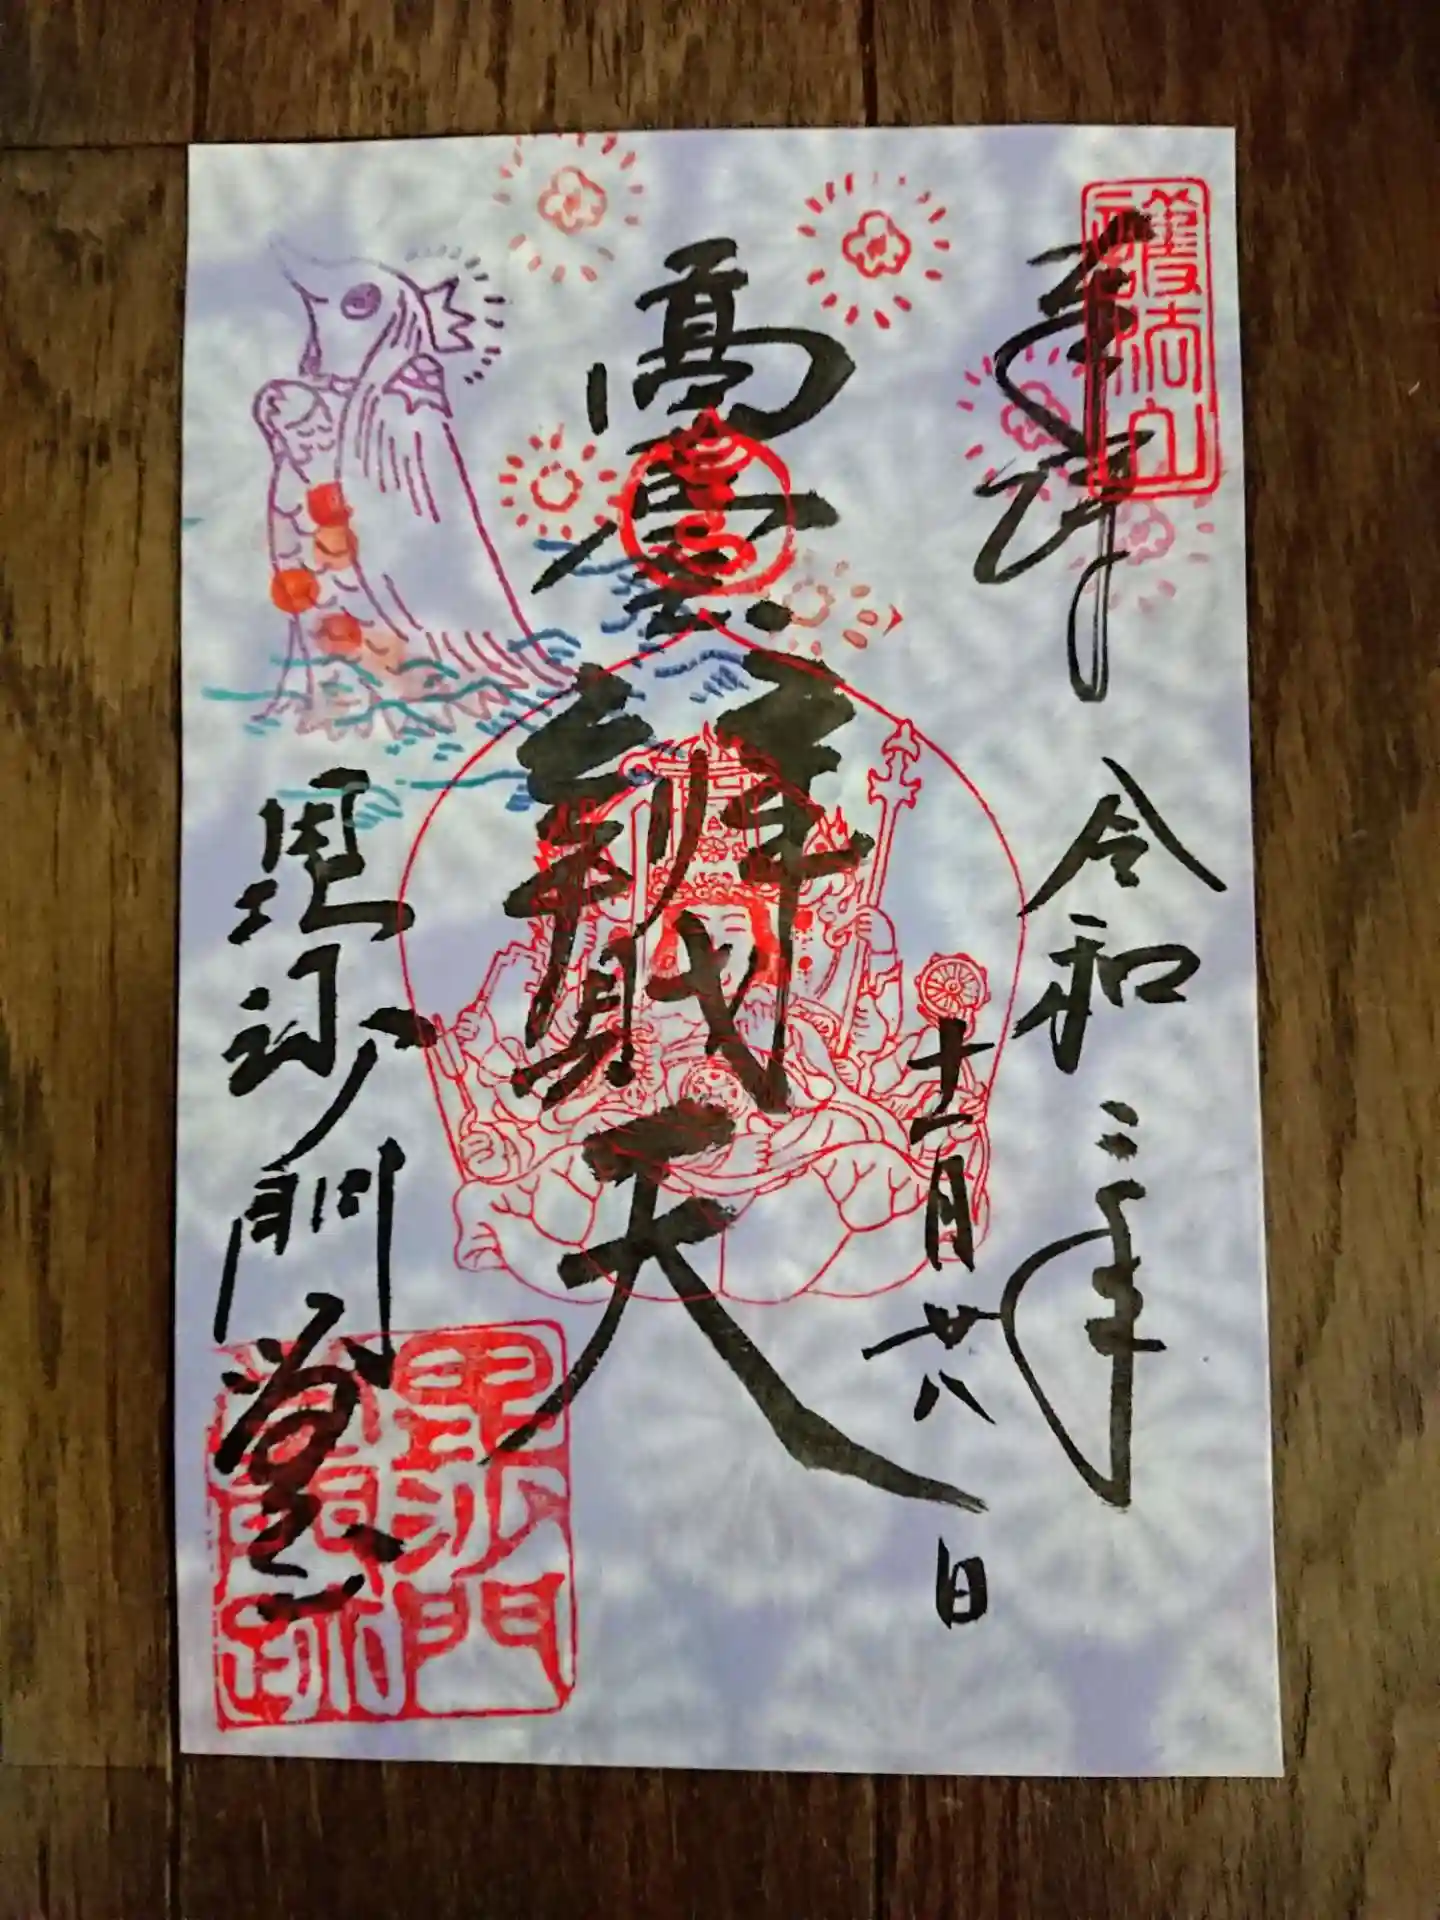 護法山
奉拝
令和三年
十一月廿八日
高臺辨財天
毘沙門堂
毘沙門
堂門跡